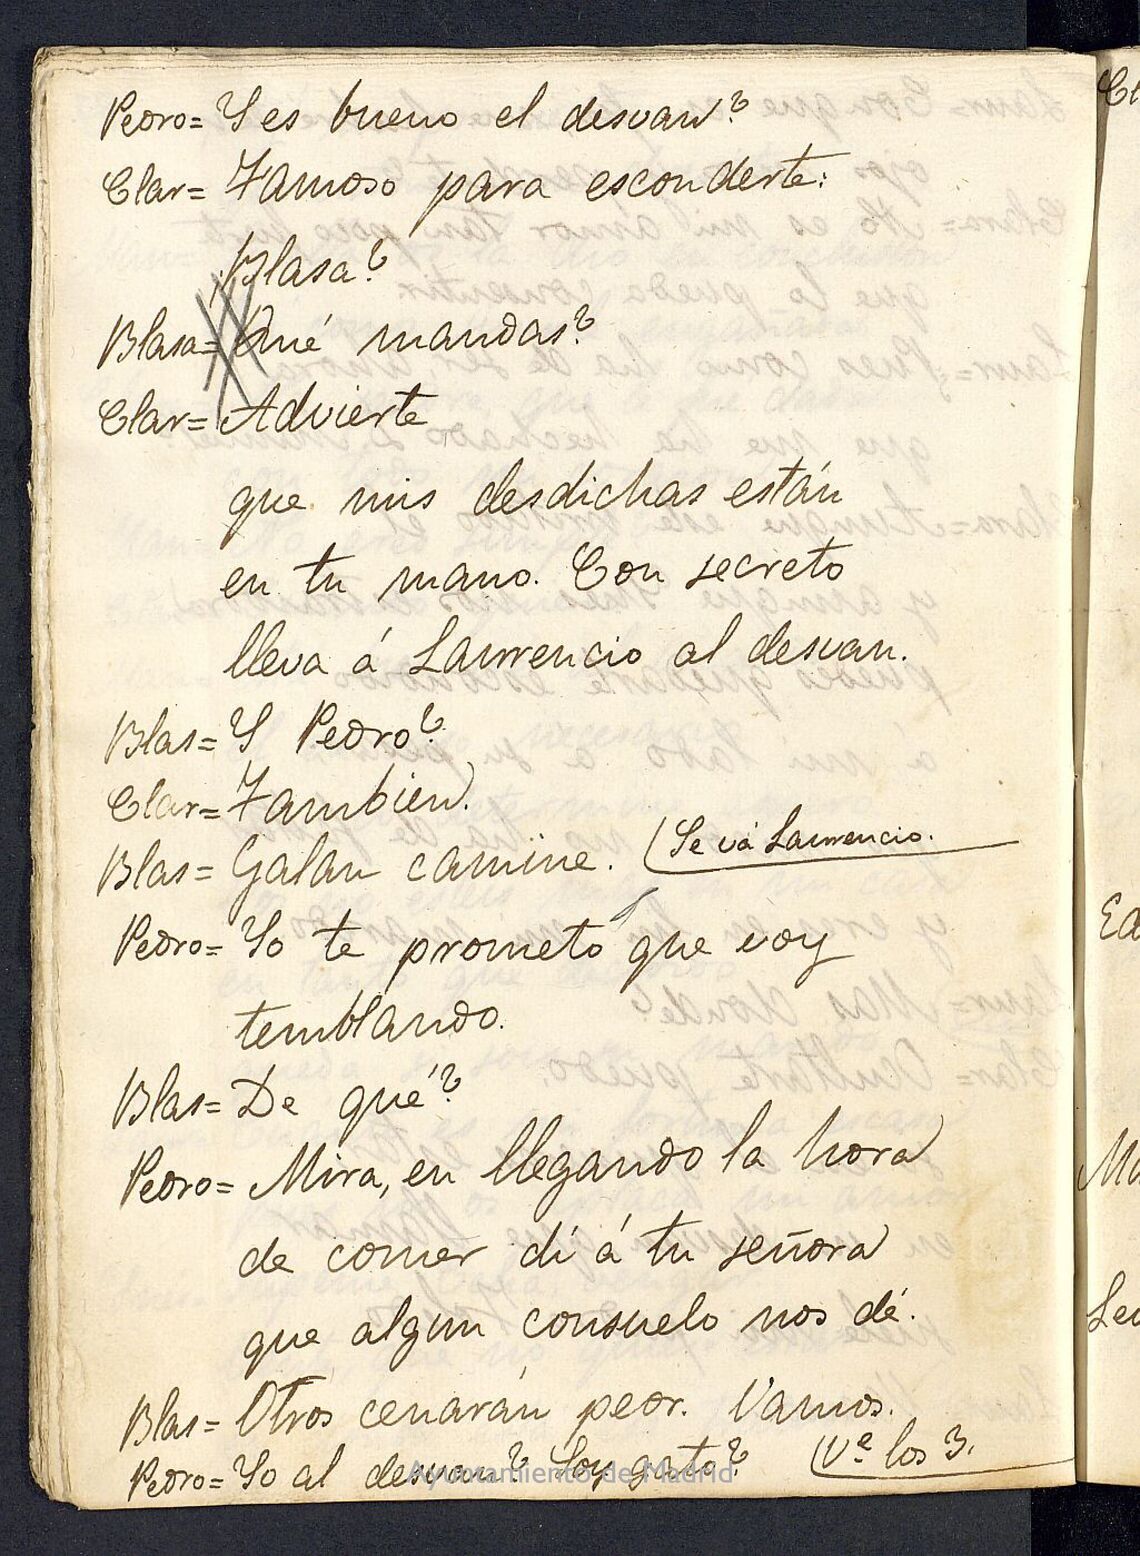 Pedro= Y es bueno el desvan?
Clar= Famoso para esconderte:
Blasa?
Blasa= Qué mandas?
Clar= Advierte
que mis desdichas están
en tu mano. Con secreto
lleva á Laurencio al desvan.
Blas= Y Pedro?
Clar= Tambien.
Blas= Galan camine. (Se vá Laurencio.
Pedro= Yo te prometo que voy
temblando.
Blas= De qué?
Pedro= Mira, en llegando la hora
de comer dí á tu señora
que algun consuelo nos dé.
Blas= Otros cenarán peor. Vamos.
Pedro= Yo al desvan? Soy gato? (Ve los 3.
Ayuntamiento de Madrid